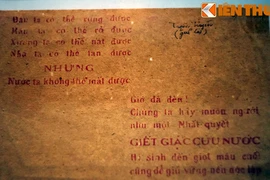 KIẾN THỨC
Đầu ta có thể rụng được
Hầu ta có thể rỗ được
Xương ta có thể nát được
Nhà ta có thể tan được
NHƯNG
Nước ta không thể mất được
Giờ đã đến!
Chúng ta hãy muôn người
như một Nhất quyết
GIẾT GIẶC CỨU NƯỚC
Hi sinh đến giọt máu cuối
cùng để giữ vững nền độc lập